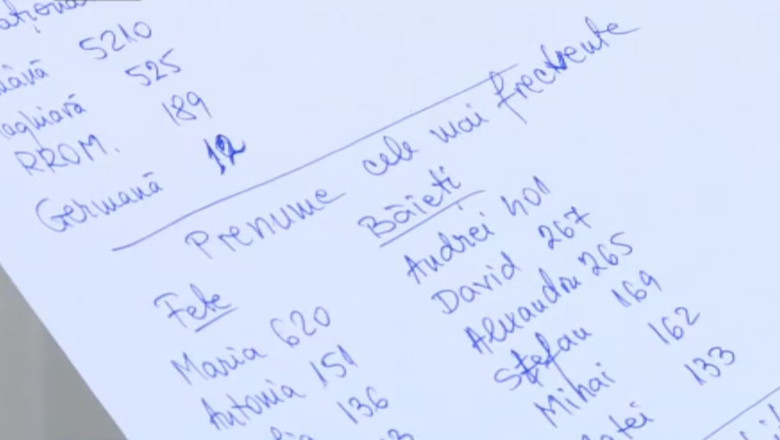 5210
525
RROM. 189
Germană 12
Prenume cele mai frecvente
Fete
Maria 620
Antonia 151
136
Băieți
Andrei 401
David 267
Alexandru 265
Ștefan 169
Mihai 162
133